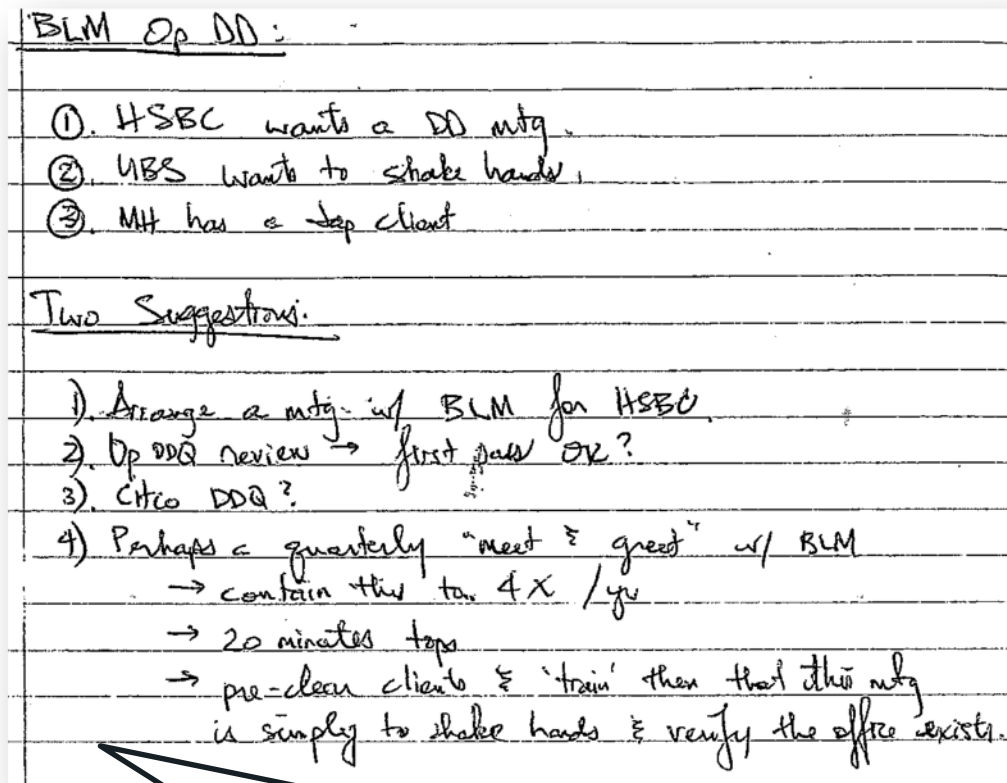 BLM Op DD:
①. HSBC wants a DD mtg.
②. UBS wants to shake hands.
③. MH has a top client
Two Suggestions:
1). Arrange a mtg. w/ BLM for HSBC.
2). Op DDQ review → first pass OK?
3). Citco DDQ?
4) Perhaps a quarterly "meet & greet" w/ BLM
→ contain this to 4X /yr
→ 20 minutes tops
→ pre-clear clients & 'train' them that this mtg
is simply to shake hands & verify the office exists.